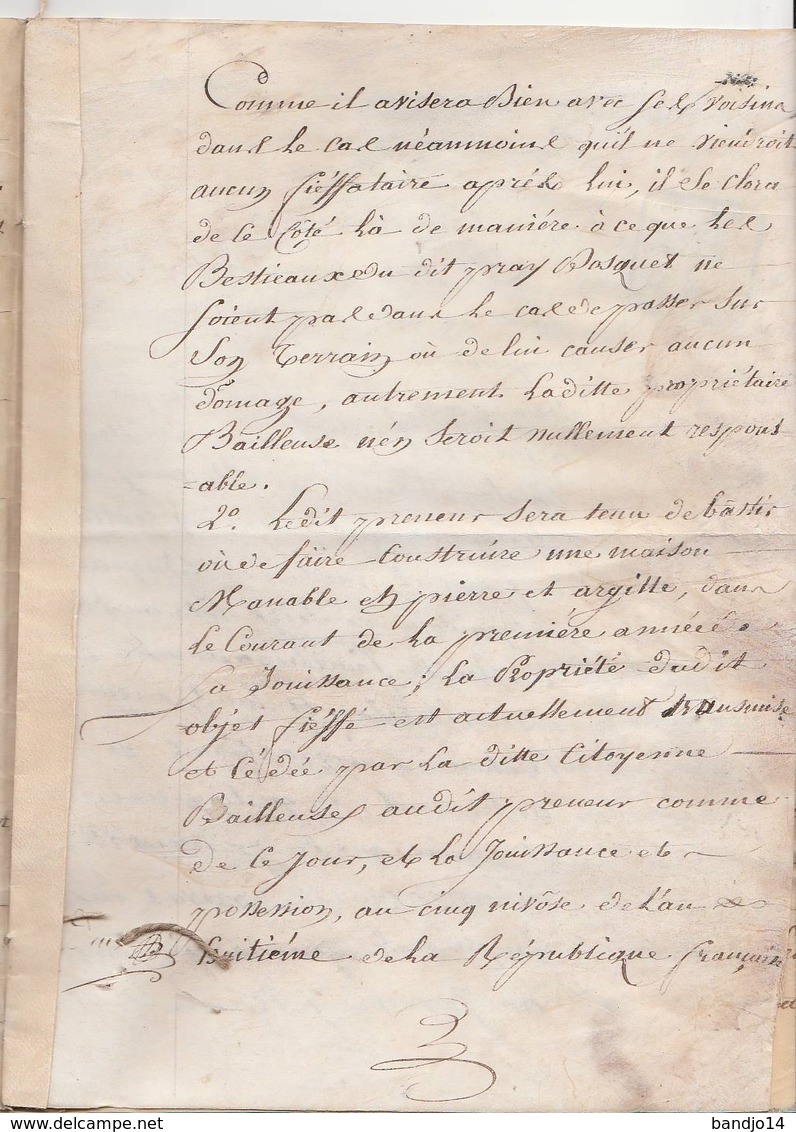 Comme il avisera Bien avec ses voisins
dans le cas néanmoins qu'il ne viendroit
aucun fieffataire aprés lui, il se clora
de ce Côté là de maniére à ce que les
Bestieaux du dit pray Bosquet ne
soient pas dans le cas de passer sur
son terrain où de lui causer aucun
domage, autrement laditte propriétaire
Bailleuse n'én seroit nullement respons
-able.
2º. Ledit preneur sera tenu de bâstir
où de faire Construire une maison
Manable en pierre et argille, dans
le Courant de la premiére année de
sa Jouissance; la Propriété dudit
objet fiéffé est actuellement transmise
et Cédée par la ditte Citoyenne
Bailleuse audit preneur comme
de ce Jour, et la Jouissance et
possession, au cinq nivôse de l'an
huitiéme de la République française
3
delcampe.net
bandjo14